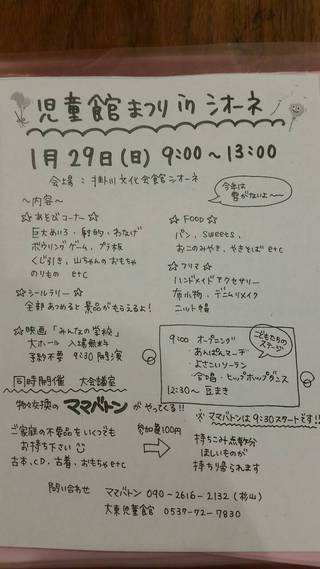 児童館まつり in シオーネ
1月29日(日) 9:00〜13:00
会場:掛川文化会館シオーネ
今年は
雪がないよ〜
〜内容〜
☆あそびコーナー☆
巨大めいろ・射的・わなげ
ボウリングゲーム・プラ板
くじ引き・山ちゃんのおもちゃ
のりもの etc
☆シールラリー☆
全部あつめると景品がもらえるよ!
☆映画「みんなの学校」
大ホール 入場無料
予約不要 9:30開演
☆FOOD☆
パン、sweets
おこのみやき、やきそば etc
☆フリマ☆
ハンドメイドアクセサリー
布小物、デニムリメイク
ニット帽
こどもたちの
ステージ
9:00 オープニング
・あんぱんマーチ
・よさこいソーラン
・合唱・ヒップホップダンス
12:30〜 豆まき
同時開催 大会議室
物々交換のママバトンがやってくる!!
※ママバトンは9:30スタートです!!
ご家庭の不要品をいくつでも
お持ち下さい
古本、CD、古着、おもちゃetc
参加費100円
持ちこみ点数分
ほしいものが
持ち帰られます
問い合わせ ママバトン 090-2616-2132(杉山)
大東児童館 0537-72-7830